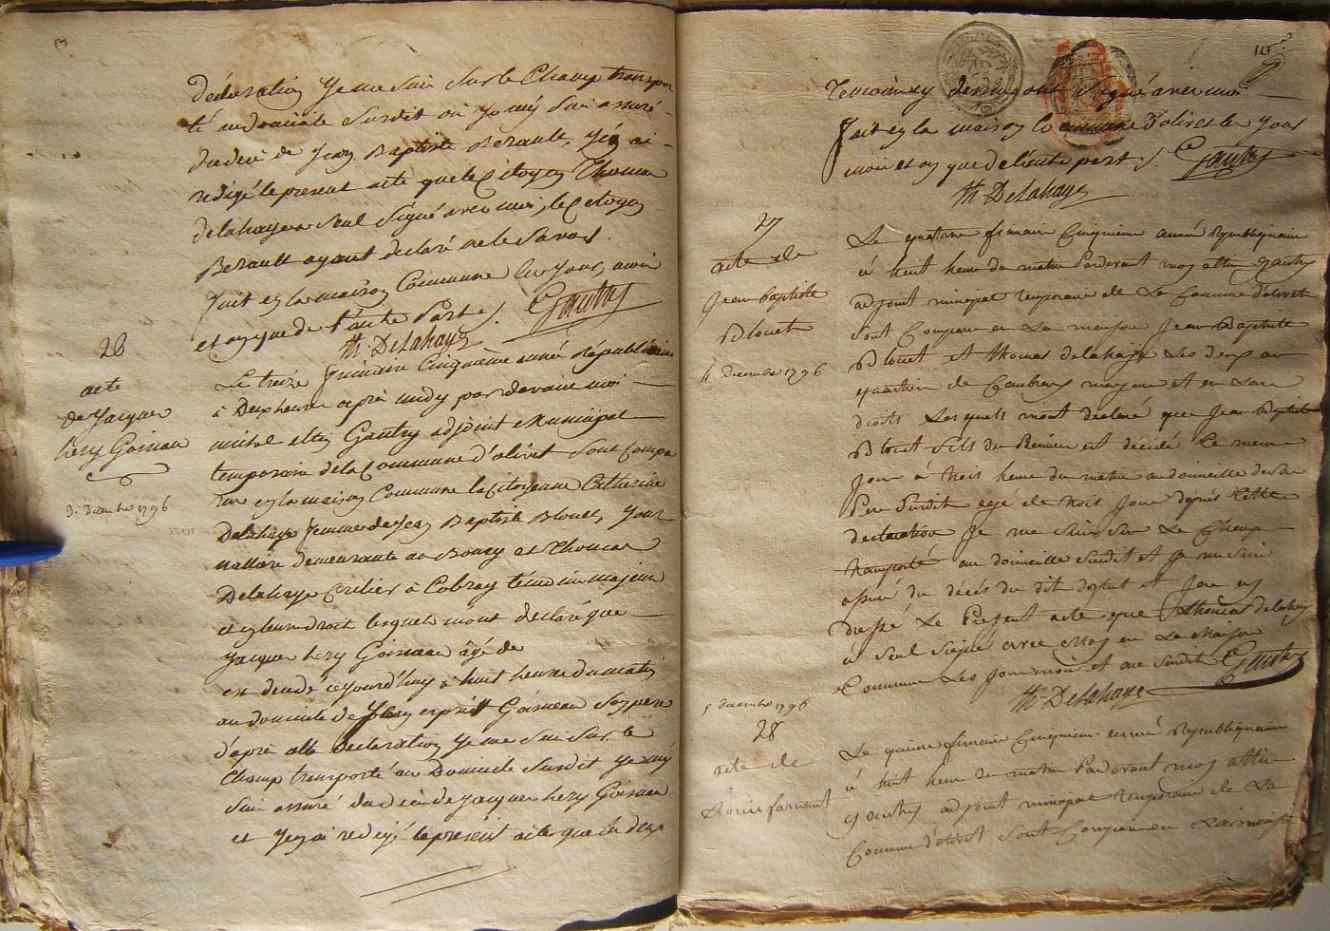 déclaration Je me suis sur le Champ transpor
té au domicile Susdit où Je m'y suis assuré
du décé de Jean Baptiste Berault, J'en ai
redigé le present acte que le Citoyen Thomas
delahaye a seul signé avec moi, le Citoyen
Berault ayant declaré ne le Savoir
fait en la maison Commune les jour, mois
et an que de l'autre Part
Gautry
th. DeLahaye
28
acte
de Jacques
henry Goineau
3. décembre 1796
Le treize frimaire Cinquième année républicaine
à Deux heures après midy par devant moi
adjoint Municipal
temporaire de la Commune d'olivet Sont Compa
rus en la maison Commune la Citoyenne Catherine
Delahaye femme de Jean Baptiste Blouet, Jour
nallière demeurante au Bourg et Thomas
Delahaye à témoins majeurs
et en leurs droits lesquels m'ont declaré que
Jacques henry Goineau âgé de
est decedé cejourd'huy à huit heures du matin
au domicile de Goineau Son pere
d'après cette Declaration Je me suis Sur le
Champ transporté au Domicile Susdit Je m'y
Suis assuré du décé de Jacques henry Goineau
et J'en ai redigé le present acte que les deux
temoins cy dessus ont Signé avec moi
fait en la maison Commune d'olivet les Jour
mois et an que de l'autre part
Gautry
th DeLahaye
27
acte de
Jean Baptiste
Blouet
4. Decembre 1796
Le quatorze frimaire Cinquieme année Republiquaine
à huit heure du matin Pardevant moy Gautry
adjoint municipal temporaire de La Commune d'olivet
sont Comparu en La maison Jean Baptiste
Blouet et thomas delahaye Les deux au
quartier de Caubray majeur et en Leur
droits Lesquels m'ont declaré que Jean Baptiste
Blouet fils du Premier est décédé Ce meme
jour à trois heure du matin au domicille de Son
Pere Susdit agé de trois Jour d'après Cette
declaration Je me Suis Sur Le Champ
transporté au domicille Susdit et Je me Suis
assuré du décés du dit Blouet et J'en ey
dressé Le Present acte que thomas delahaye
a Seul Signé avec Moy en La Maison
Commune Les Jour mois et an Susdit
Gautry
th DeLahaye
5 decembre 1796
28
acte de
Le quinze frimaire Cinquieme année Republiquaine
à huit heure du matin Pardevant moy
gautry adjoint municipal temporaire de La
Commune d'olivet Sont Comparu en La maison